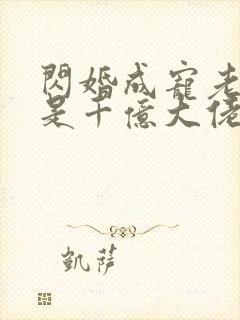 閃婚成寵老
是千億大佬
凱薩